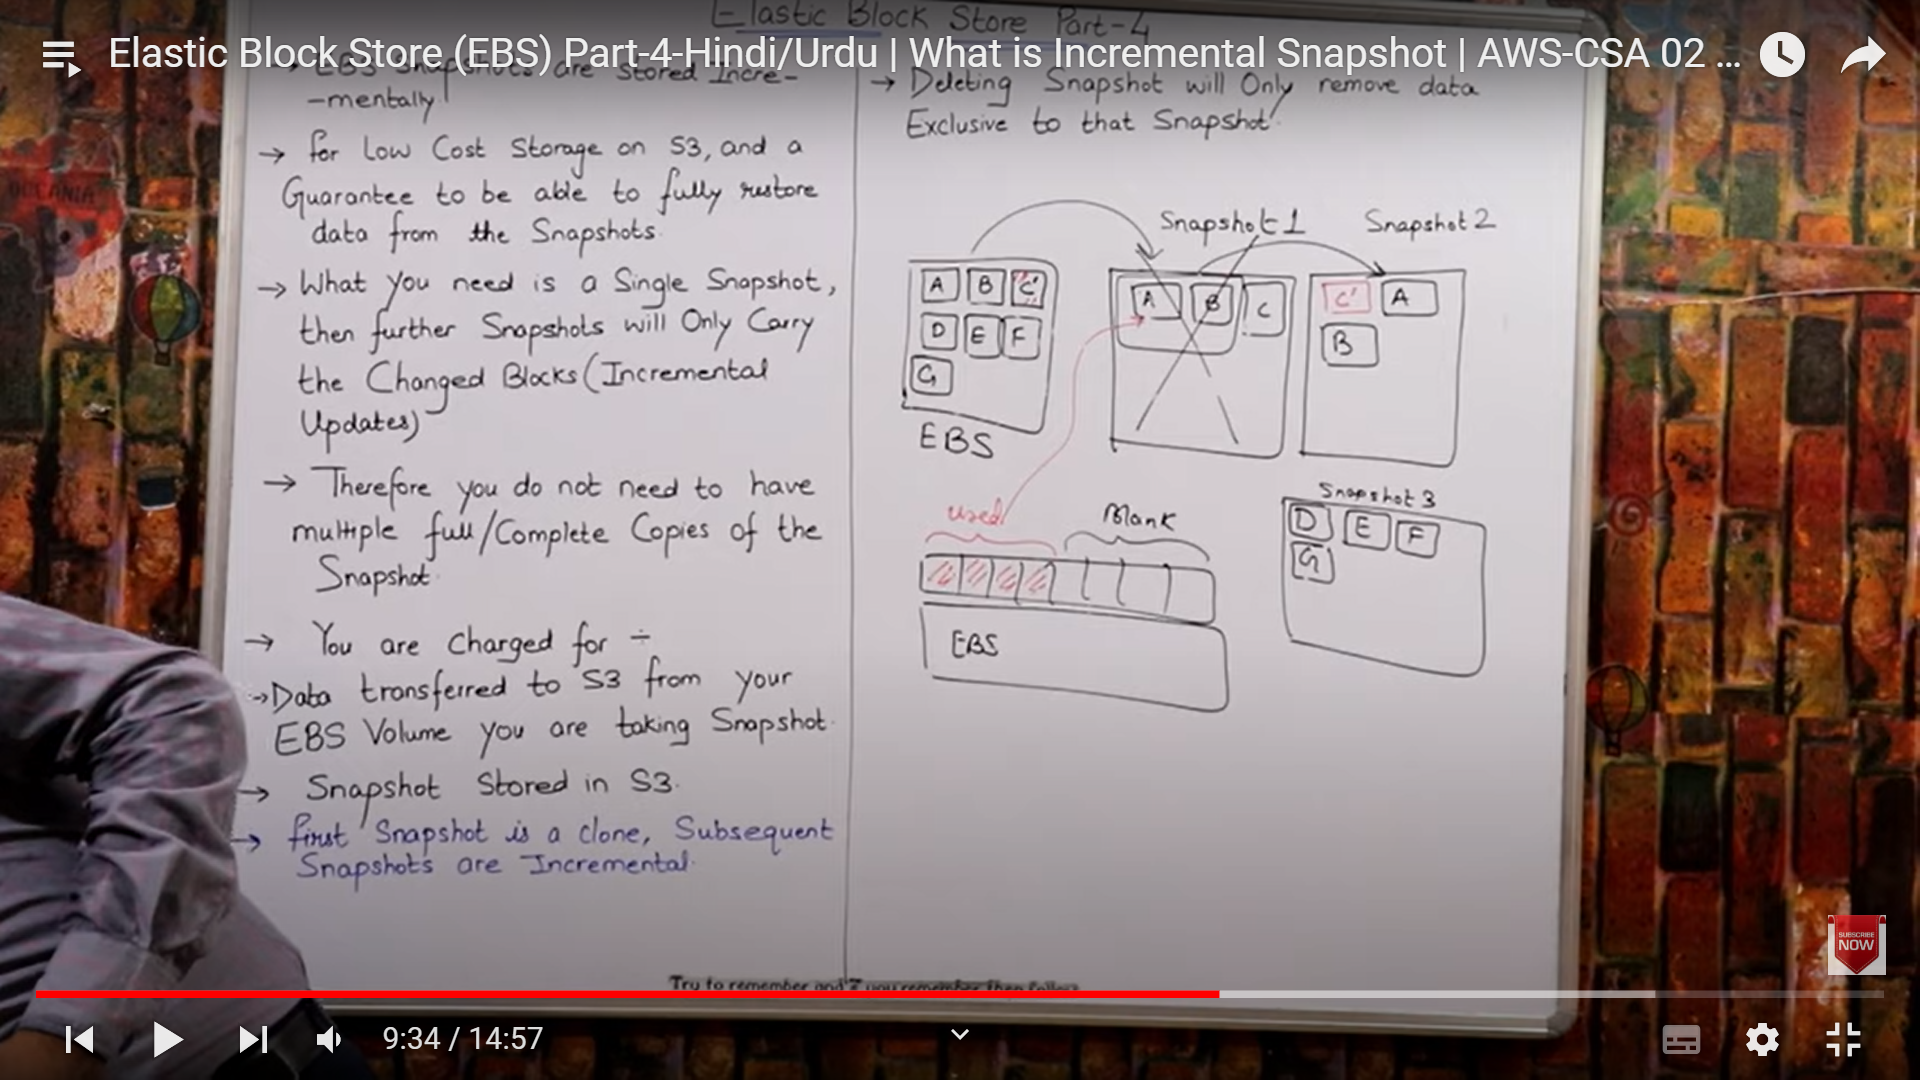 Elastic Block Store Part-4
Elastic Block Store (EBS) Part-4-Hindi/Urdu | What is Incremental Snapshot | AWS-CSA 02 ...
→ EBS Snapshots are Stored Incre-
-mentally
→ for Low Cost Storage on S3, and a
Guarantee to be able to fully restore
data from the Snapshots.
→ What you need is a Single Snapshot,
then further Snapshots will Only Carry
the Changed Blocks (Incremental
Updates)
→ Therefore you do not need to have
multiple full/Complete Copies of the
Snapshot.
→ You are Charged for ÷
→ Data transferred to S3 from your
EBS Volume you are taking Snapshot.
→ Snapshot Stored in S3.
→ first Snapshot is a clone, Subsequent
Snapshots are Incremental.
→ Deleting Snapshot will Only remove data
Exclusive to that Snapshot.
Snapshot 1
Snapshot 2
A B C'
D E F
G
EBS
A B C
C' A
B
used
Blank
EBS
Snapshot 3
D E F
G
OCEANIA
SUBSCRIBE
NOW
Try to remember and
9:34 / 14:57